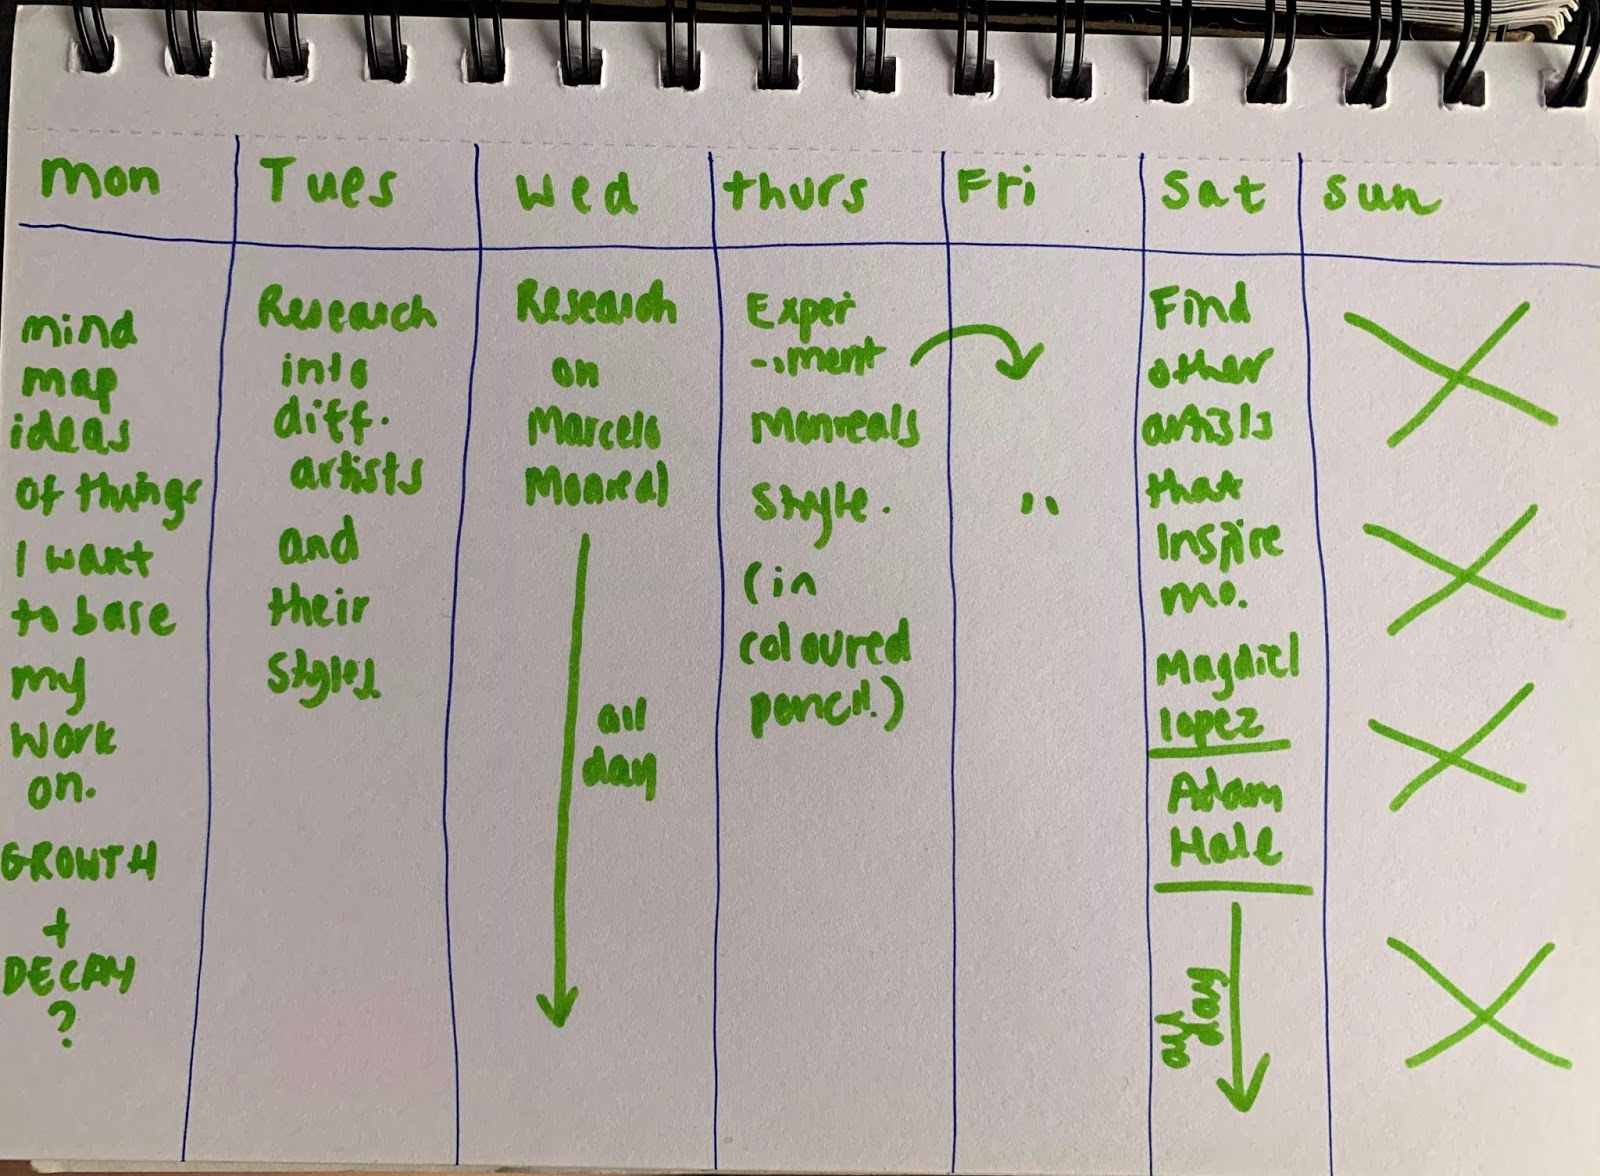 Mon
Tues
Wed
thurs
Fri
Sat
Sun
mind
map
ideas
of things
I want
to base
my
work
on.
GROWTH
+
DECAY
?
Research
into
diff.
artists
and
their
styles
Research
on
Marcelo
Monreal
all
day
Exper
-iment
Monreals
Style.
(in
coloured
pencil.)
"
Find
other
artists
that
Inspire
me.
Magdiel
lopez
Adam
Hale
all
day